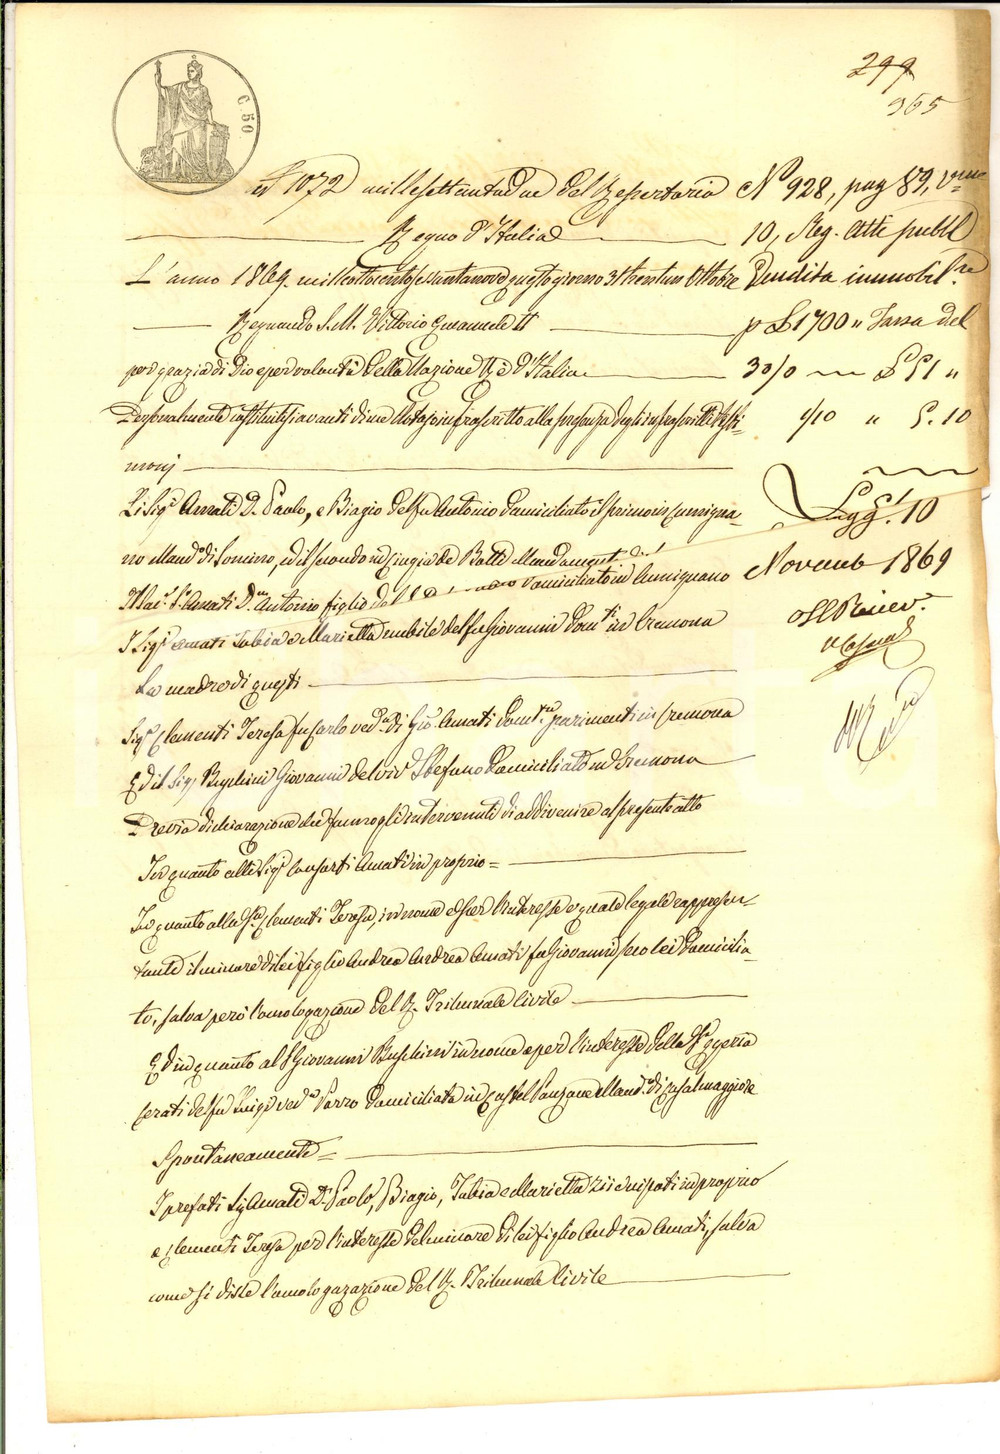 299
365
C. 50
N 1072 millesettantadue del Repertorio
Regno d'Italia
L'anno 1869. milleottocentosessantanove questo giorno 31 trentun Ottobre
Regnando S. M. Vittorio Emanuele II
per grazia di Dio e per volontà della Nazione Re d'Italia
Personalmente costituitisi avanti di me Notajo infrascritto alla presenza degli infrascritti testi-
monj
Li Sigi Amati Dn Paolo, e Biagio del fu Antonio domiciliato il primo in Cumigna-
no Mandto di Soncino, ed il secondo in Cingia de Botti Mandamento di
Amati Dn Antonio figlio domiciliato in Cumignano
I Sigi Amati Tobia e Marietta nubile del fu Giovanni domti in Cremona
La madre di questi
Siga Clementi Teresa fu Carlo veda di Gio. Amati parimenti in Cremona
Ed il Sigr Buschini Giovanni del viv. Stefano domiciliato in Cremona
Previa dichiarazione che fanno gli intervenuti di addivenire al presente atto
In quanto alli Sigi Consorti Amati in proprio =
In quanto alla Sa Clementi Teresa, in nome e per l'interesse e quale legale rappresen-
tante il minore di lei figlio Andrea Andrea Amati fu Giovanni seco lei domicilia-
to, salva però l'omologazione del R. Tribunale Civile
Ed in quanto al S Giovanni Buschini in nome e per l'interesse della Sa
Cerati del fu Luigi veda domiciliata in Mandto di Casalmaggiore
Spontaneamente =
I prefati Sigi Amati Dn Paolo, Biagio, Tobia e Marietta zii e nipoti in proprio
e Clementi Teresa per l'interesse del minore di lei figlio Andrea Amati, salva
come si disse l'omologazione del R. Tribunale Civile
N° 928, pag 89, Vme
10, Reg. Atti pubbl
Vendita immobilre
p £ 1700 „ Tassa del
3 0/0 £ 51 „
1/10 „ 5. 10
10
Novemb 1869
Il Ricev.